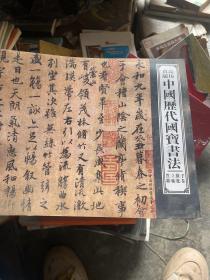 中國歷代國寶書法
永和九年歲在癸丑暮春之初會
于會稽山陰之蘭亭脩稧事
也群賢畢至少長咸集此地
領茂林脩竹又有清流激
湍暎帶左右引以為流觴曲水
列坐其次雖無絲竹管弦之
盛一觴一詠亦足以暢敘幽情
是日也天朗氣清惠風和